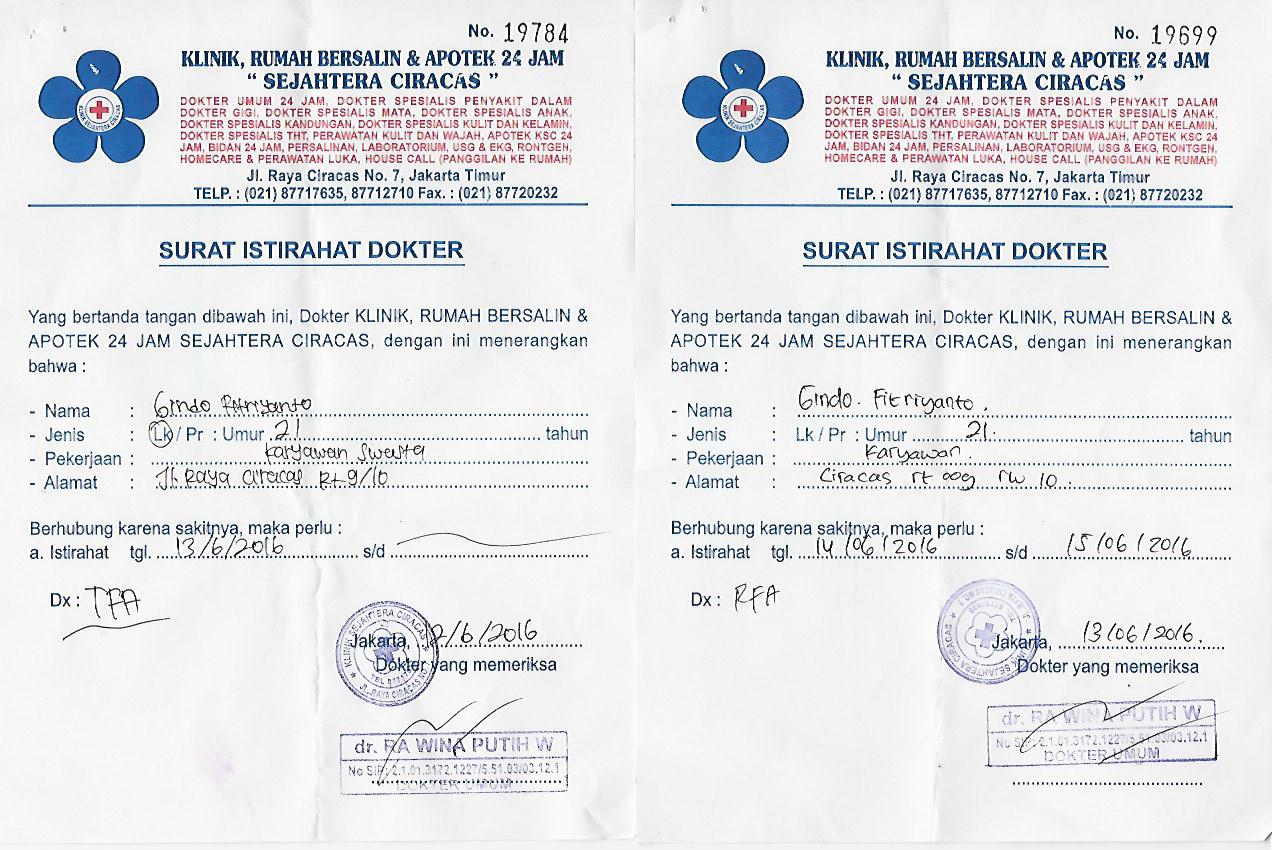 No. 19784
KLINIK, RUMAH BERSALIN & APOTEK 24 JAM
“ SEJAHTERA CIRACAS ”
DOKTER UMUM 24 JAM, DOKTER SPESIALIS PENYAKIT DALAM
DOKTER GIGI, DOKTER SPESIALIS MATA, DOKTER SPESIALIS ANAK,
DOKTER SPESIALIS KANDUNGAN, DOKTER SPESIALIS KULIT DAN KELAMIN,
DOKTER SPESIALIS THT, PERAWATAN KULIT DAN WAJAH, APOTEK KSC 24
JAM, BIDAN 24 JAM, PERSALINAN, LABORATORIUM, USG & EKG, RONTGEN,
HOMECARE & PERAWATAN LUKA, HOUSE CALL (PANGGILAN KE RUMAH)
Jl. Raya Ciracas No. 7, Jakarta Timur
TELP. : (021) 87717635, 87712710 Fax. : (021) 87720232
SURAT ISTIRAHAT DOKTER
Yang bertanda tangan dibawah ini, Dokter KLINIK, RUMAH BERSALIN &
APOTEK 24 JAM SEJAHTERA CIRACAS, dengan ini menerangkan
bahwa :
- Nama : Gindo Fitriyanto
- Jenis : Lk / Pr : Umur 21 tahun
- Pekerjaan : Karyawan Swasta
- Alamat : Jl. Raya Ciracas Rt 9/10
Berhubung karena sakitnya, maka perlu :
a. Istirahat tgl. 13/6/2016 s/d
Dx : TFA
KLINIK SEJAHTERA CIRACAS
JL. RAYA CIRACAS NO
Jakarta, 12/6/2016
Dokter yang memeriksa
dr. RA WINA PUTIH W
No SIP: 2.1.01.3172.1227/5.51.03/03.12.1
DOKTER UMUM
No. 19699
KLINIK, RUMAH BERSALIN & APOTEK 24 JAM
“ SEJAHTERA CIRACAS ”
DOKTER UMUM 24 JAM, DOKTER SPESIALIS PENYAKIT DALAM
DOKTER GIGI, DOKTER SPESIALIS MATA, DOKTER SPESIALIS ANAK,
DOKTER SPESIALIS KANDUNGAN, DOKTER SPESIALIS KULIT DAN KELAMIN,
DOKTER SPESIALIS THT, PERAWATAN KULIT DAN WAJAH, APOTEK KSC 24
JAM, BIDAN 24 JAM, PERSALINAN, LABORATORIUM, USG & EKG, RONTGEN,
HOMECARE & PERAWATAN LUKA, HOUSE CALL (PANGGILAN KE RUMAH)
Jl. Raya Ciracas No. 7, Jakarta Timur
TELP. : (021) 87717635, 87712710 Fax. : (021) 87720232
SURAT ISTIRAHAT DOKTER
Yang bertanda tangan dibawah ini, Dokter KLINIK, RUMAH BERSALIN &
APOTEK 24 JAM SEJAHTERA CIRACAS, dengan ini menerangkan
bahwa :
- Nama : Gindo. Fitriyanto.
- Jenis : Lk / Pr : Umur 21. tahun
- Pekerjaan : Karyawan.
- Alamat : Ciracas rt 009 rw 10.
Berhubung karena sakitnya, maka perlu :
a. Istirahat tgl. 14/06/2016 s/d 15/06/2016
Dx : RFA
Jakarta, 13/06/2016.
Dokter yang memeriksa
dr. RA WINA PUTIH W
No SIP: 2.1.01.3172.1227/5.51.03/03.12.1
DOKTER UMUM